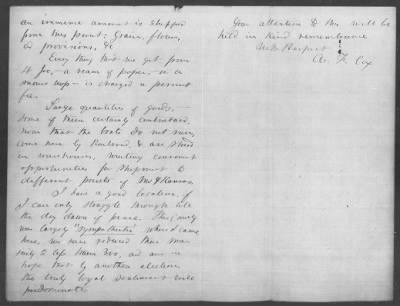 an immense amount is shipped
from this point: Grain, flour,
provisions, &c
Every thing that we get from
a ream of paper - or a
is charged a permit
fee.
Large quantities of goods -
some of them certainly contraband,
now that the boats do not run,
come here by Railroad, & are stored
in warehouses, waiting convenient
opportunities for shipment to
different points of Mo & Kansas
I have a good location, if
I can only struggle through till
the day dawn of peace. This
was largely "sympathetic" when I came
here, we have reduced their ma-
jority to less than 300, and are in
hope that by another election
the truly loyal sentiment will
predominate.
Your attention to this will be
held in kind remembrance
Very Respect
Cox